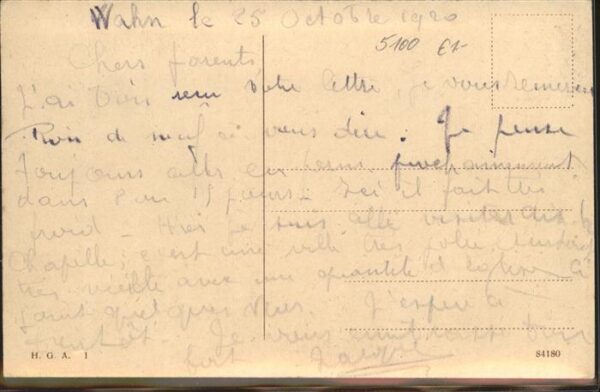 Wahn le 25 Octobre 1920
5100 €1-
Chers parents,
J'ai bien reçu votre lettre, je vous remercie
Rien de neuf à vous dire. Je pense
toujours aller en
dans 8 ou 15 jours. Ici il fait très
froid. Hier je suis allé visiter Aix la
Chapelle, c'est une ville très jolie,
très vieille avec une quantité d'églises à
J'espère à
bientôt. Je vous embrasse bien
fort
H. G. A. 1
84180